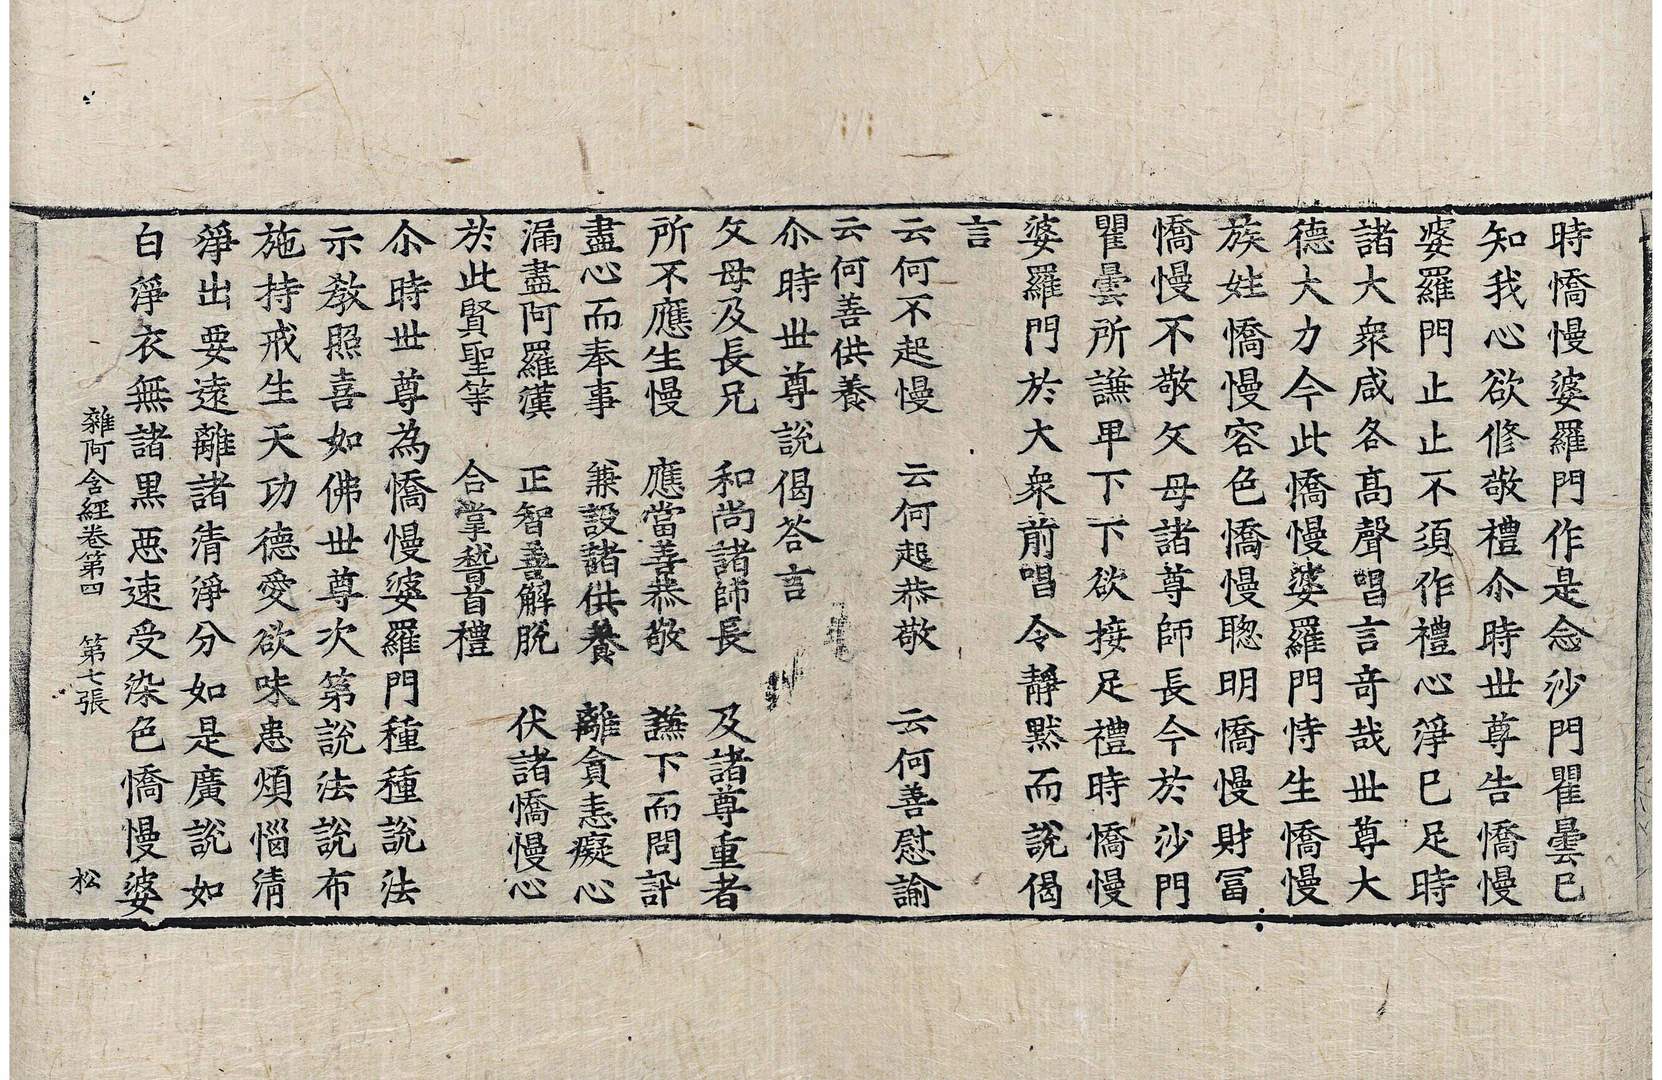 時憍慢婆羅門作是念沙門瞿曇已
知我心欲修敬禮尒時世尊告憍慢
婆羅門止止不須作禮心淨已足時
諸大衆咸各高聲唱言竒哉世尊大
德大力今此憍慢婆羅門恃生憍慢
族姓憍慢容色憍慢聦明憍慢財冨
憍慢不敬父母諸尊師長今於沙門
瞿曇所謙卑下下欲接足禮時憍慢
婆羅門於大衆前唱令靜默而說偈
言
云何不起慢　云何起恭敬　云何善慰諭
云何善供養
尒時世尊說偈荅言
父母及長兄　和尚諸師長　及諸尊重者
所不應生慢　應當善恭敬　謙下而問訊
盡心而奉事　兼設諸供養　離貪恚癡心
漏盡阿羅漢　正智善解脫　伏諸憍慢心
於此賢聖等　合掌稽首禮
尒時世尊為憍慢婆羅門種種說法
示敎照喜如佛世尊次第說法說布
施持戒生天功德愛欲味患煩惱清
淨出要遠離諸清淨分如是廣說如
白淨衣無諸黒惡速受染色憍慢婆
雜阿含經卷第四　第七張　松